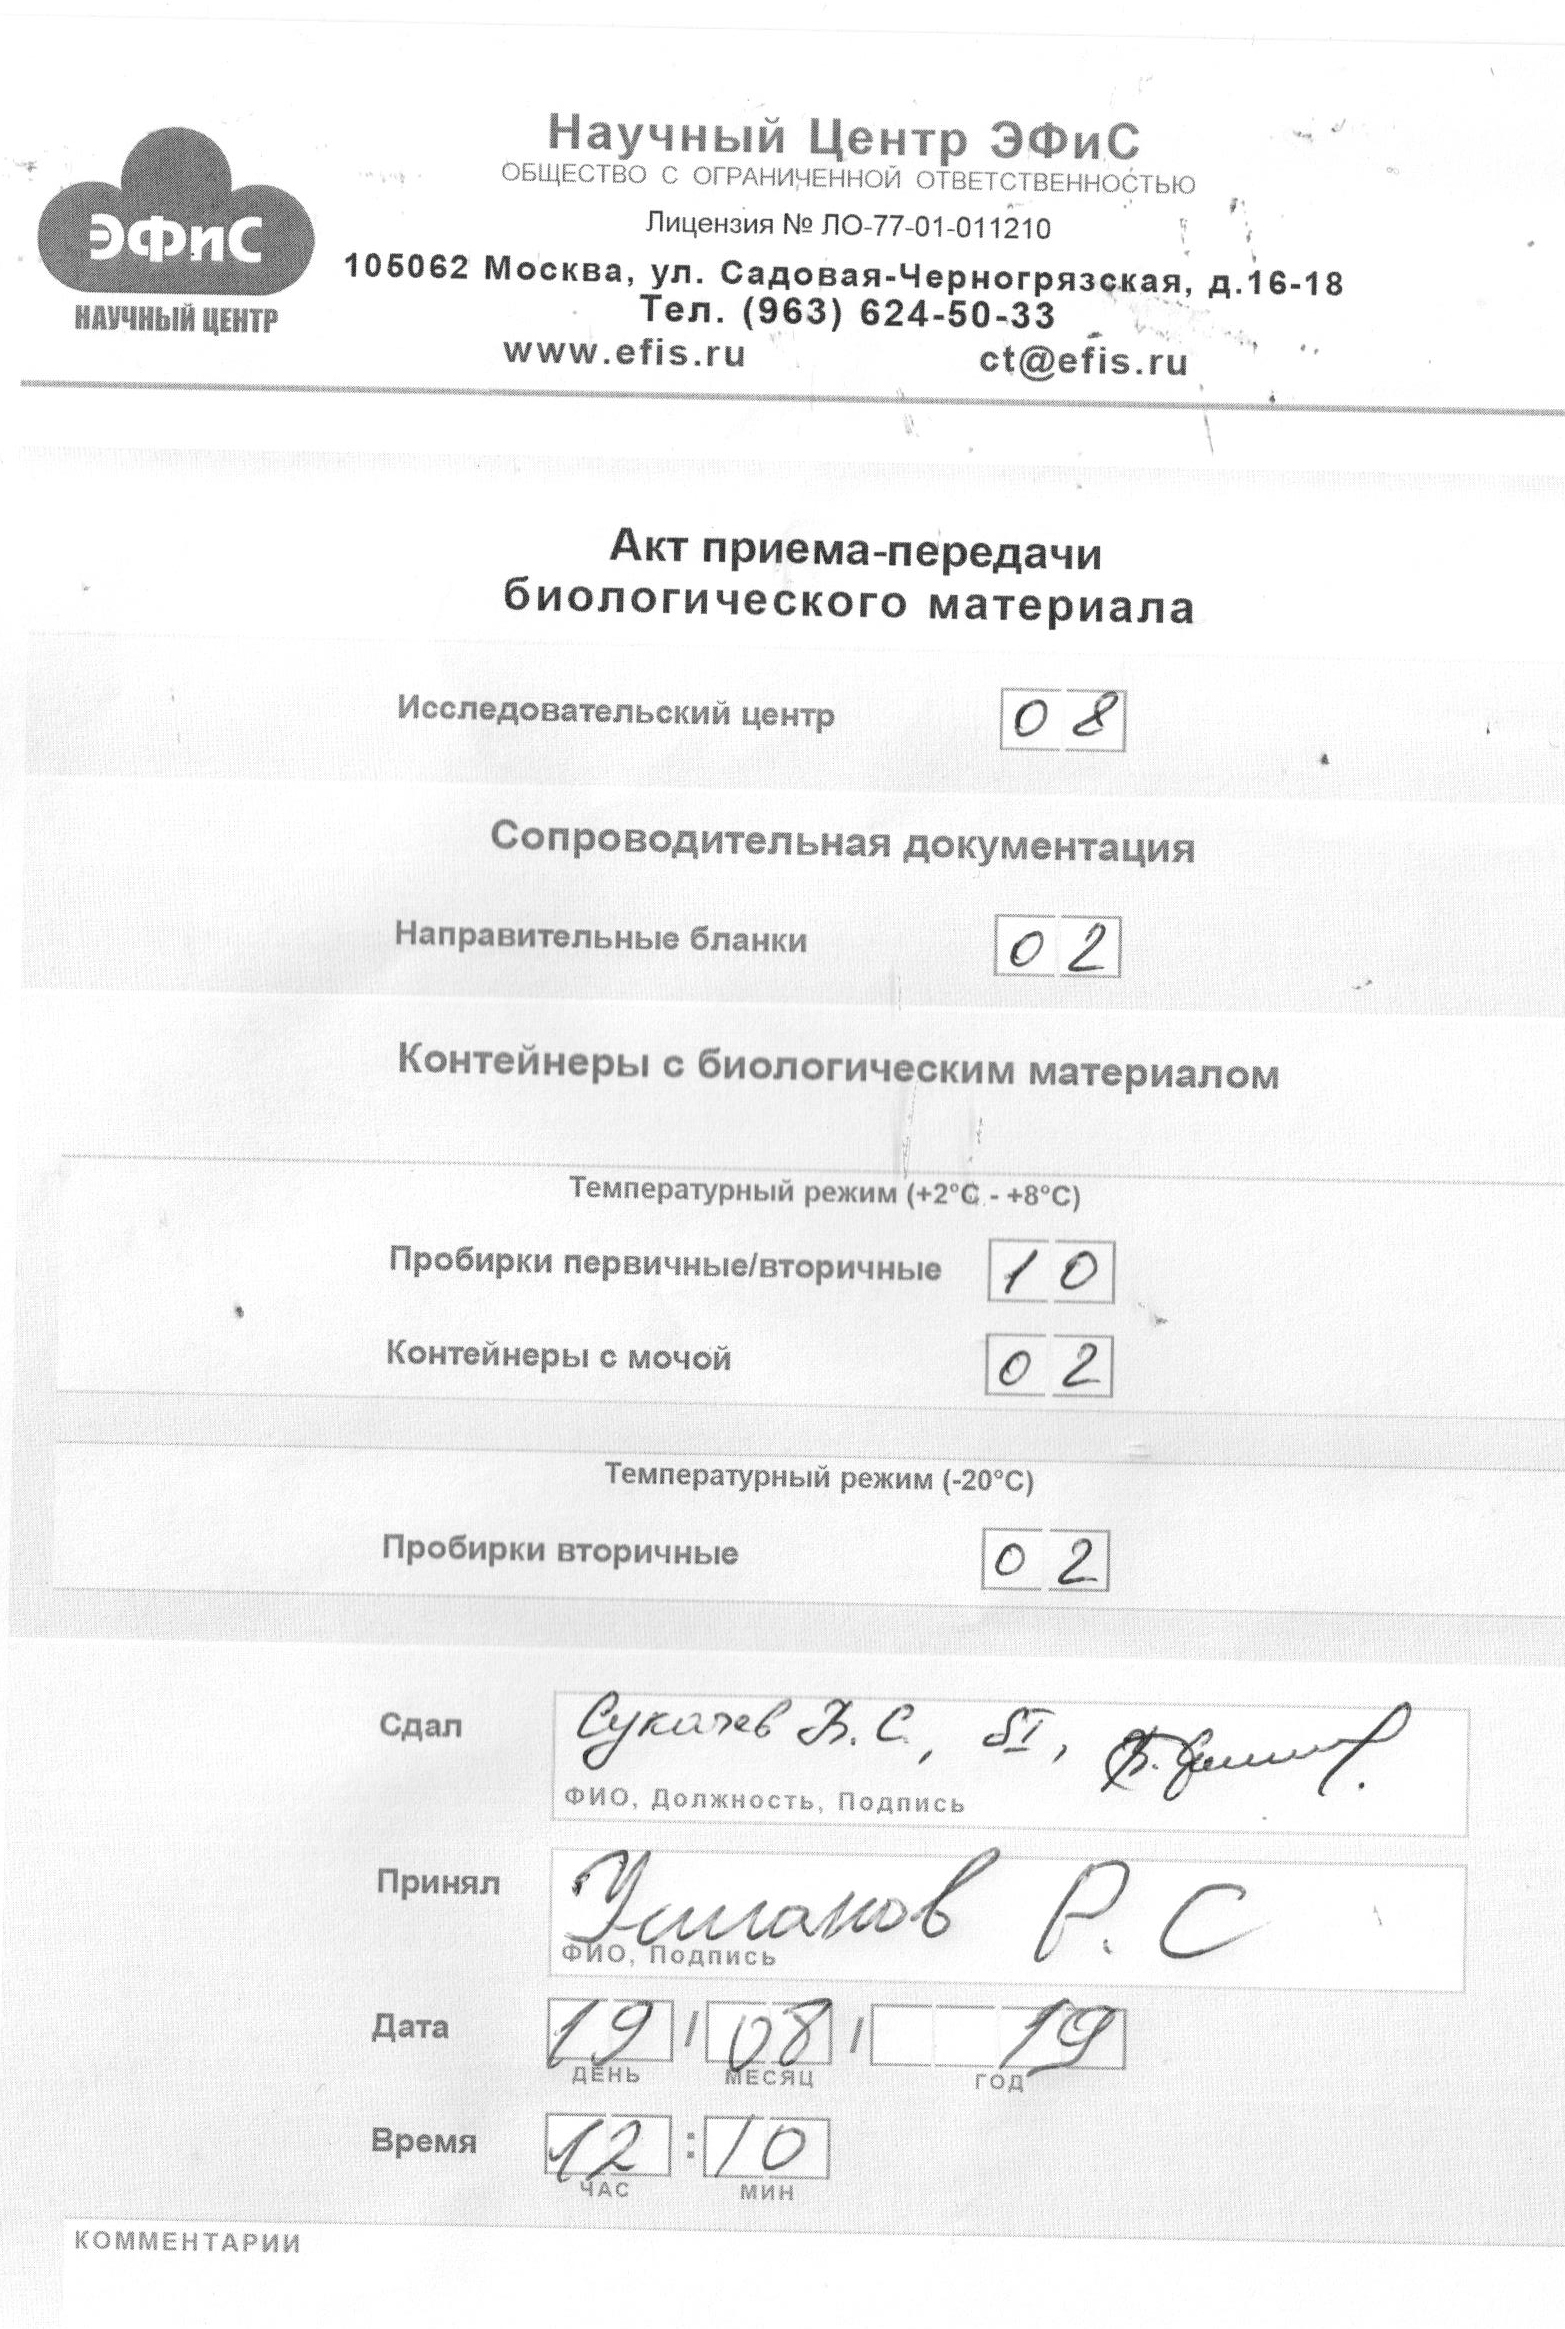 ЭФиС
НАУЧНЫЙ ЦЕНТР
Научный Центр ЭФиС
ОБЩЕСТВО С ОГРАНИЧЕННОЙ ОТВЕТСТВЕННОСТЬЮ
Лицензия № ЛО-77-01-011210
105062 Москва, ул. Садовая-Черногрязская, д.16-18
Тел. (963) 624-50-33
www.efis.ru ct@efis.ru
Акт приема-передачи
биологического материала
Исследовательский центр 08
Сопроводительная документация
Направительные бланки 02
Контейнеры с биологическим материалом
Температурный режим (+2°C - +8°C)
Пробирки первичные/вторичные 10
Контейнеры с мочой 02
Температурный режим (-20°C)
Пробирки вторичные 02
Сдал Сукачев В.С.,
ФИО, Должность, Подпись
Принял Усманов Р.С
ФИО, Подпись
Дата 19 / 08 / 19
ДЕНЬ МЕСЯЦ ГОД
Время 12 : 10
ЧАС МИН
КОММЕНТАРИИ